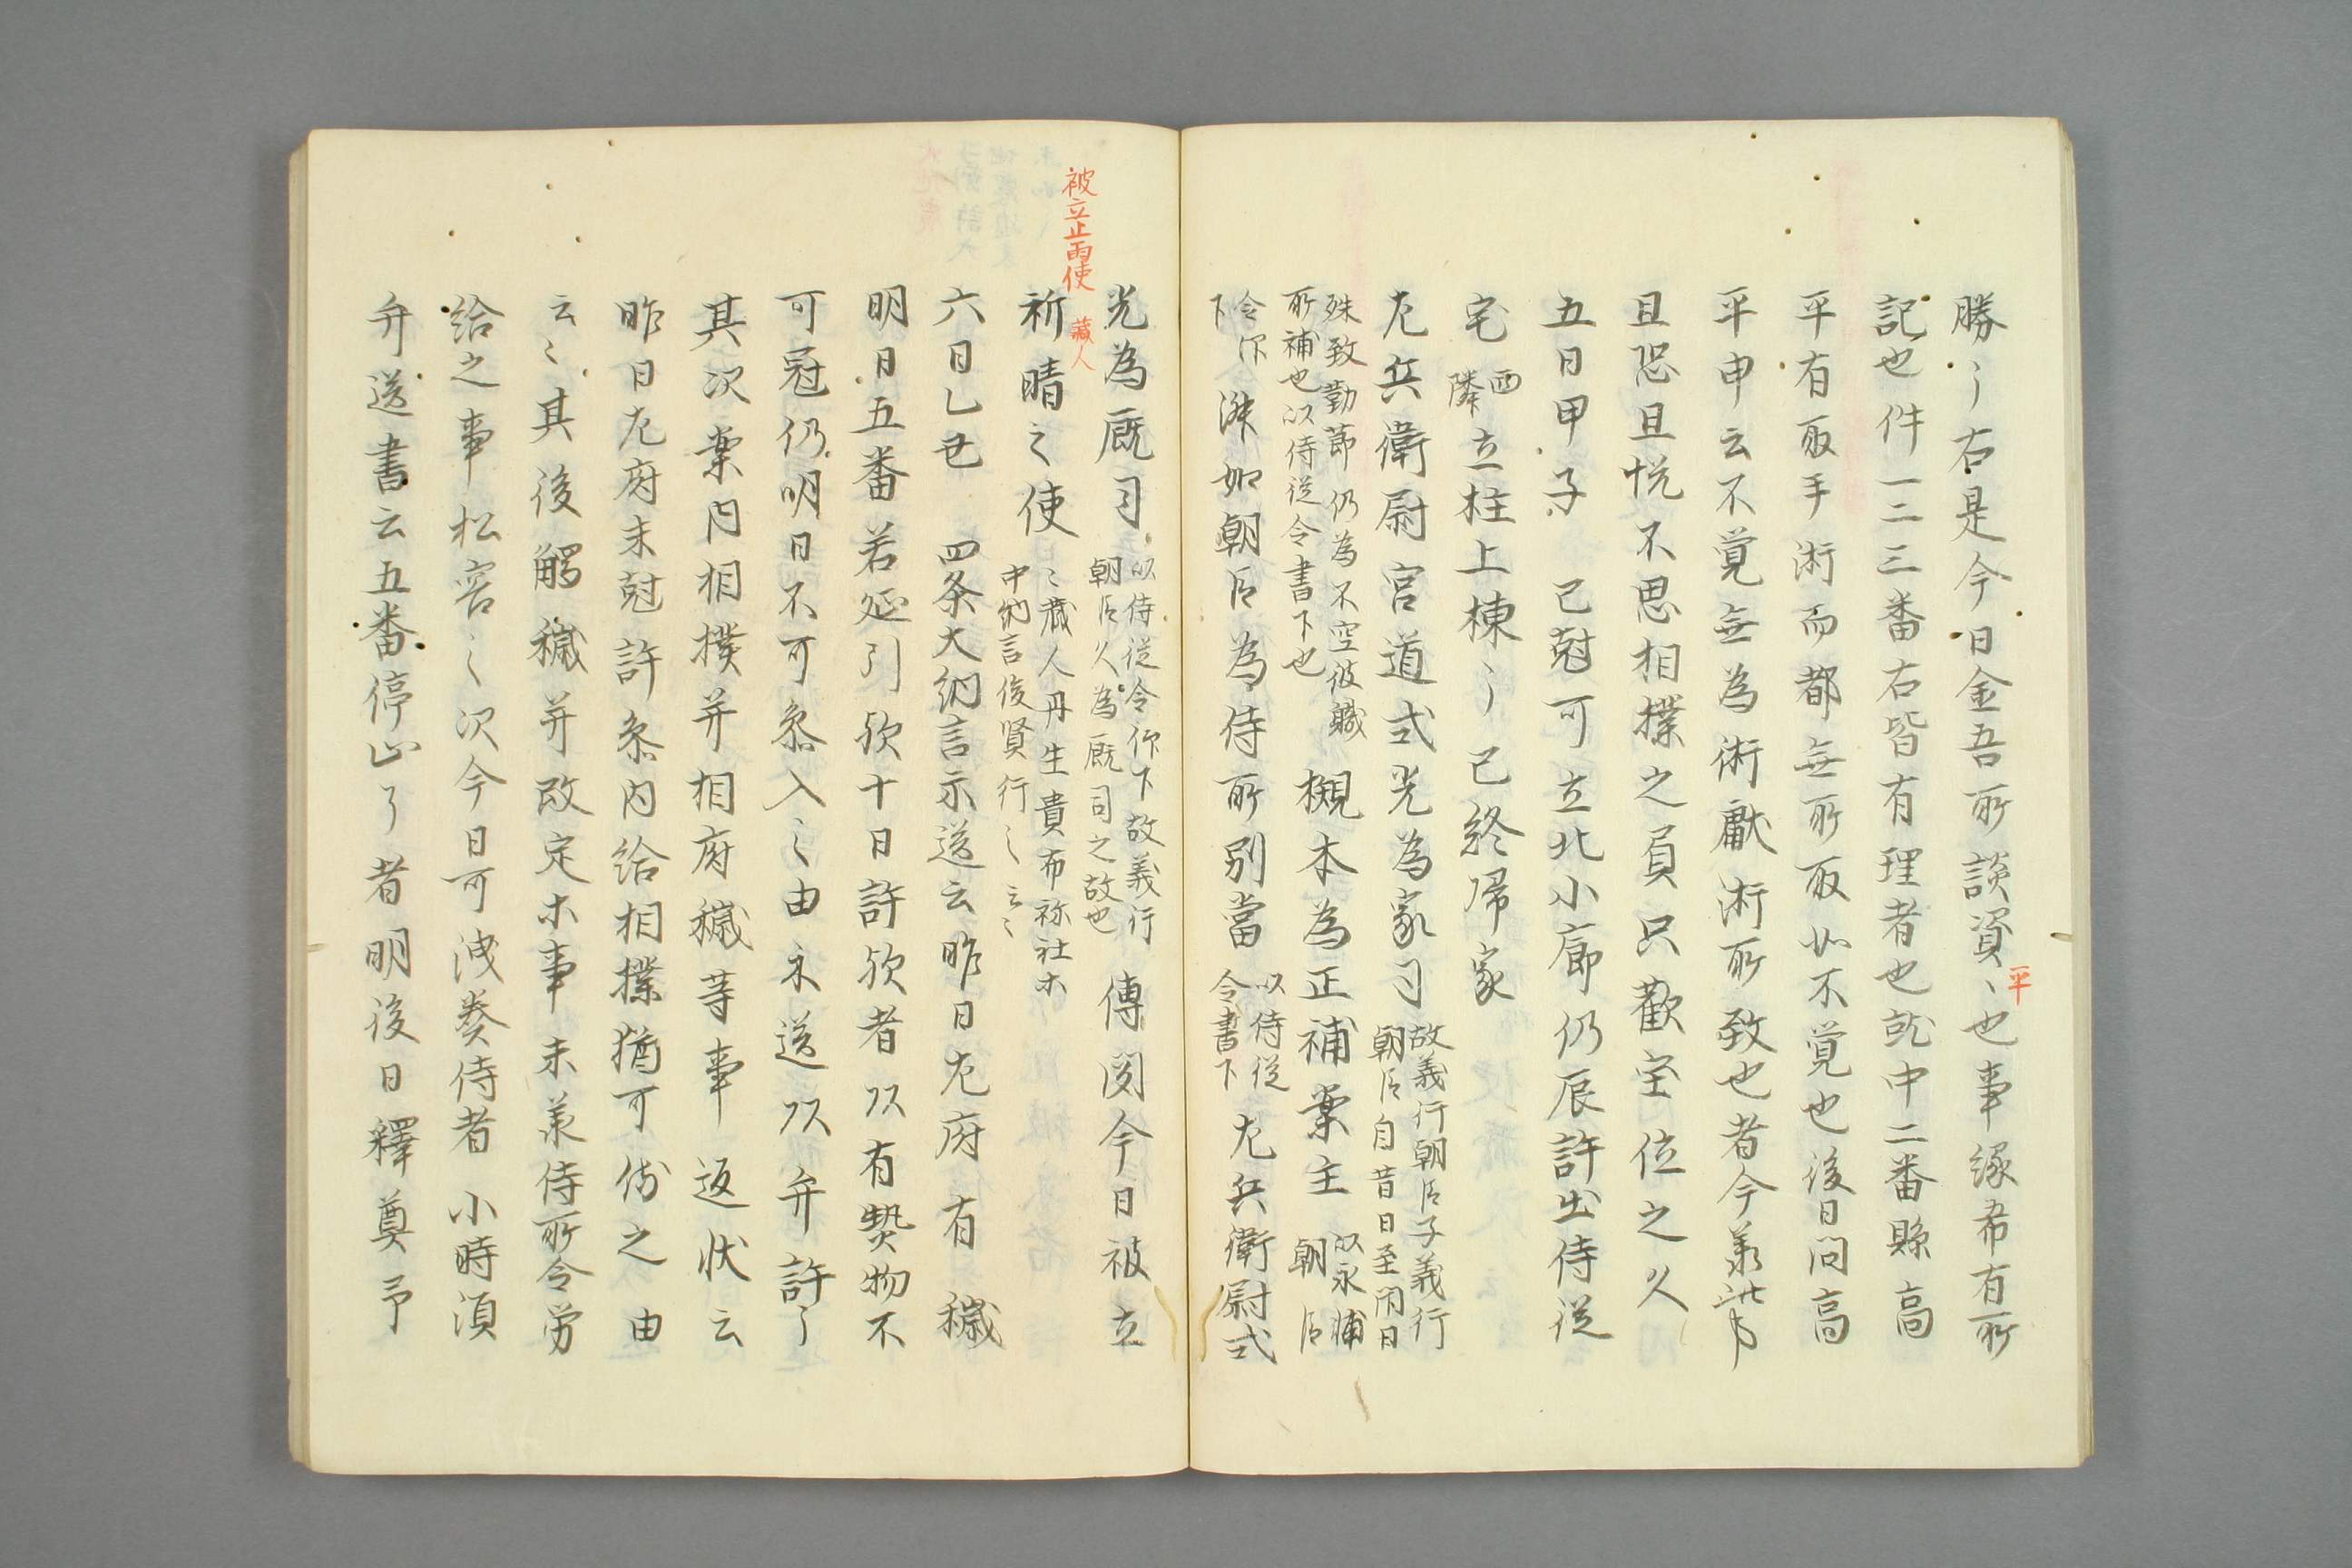 勝〻右是今日金吾所談資〻也事縁希有所
平
記也件一二三番右皆有理者也就中二番縣高
平有取手術而都無所取如不覚也後日問高
平申云不覚無為術獻術所致也者今羕此
且恐且悦不思相撲之負只歡宝位之久
五日甲子 己尅可立北小廊仍辰許出侍従
宅西隣立柱上棟〻已終帰家
左兵衛尉宮道式光為家司故義行朝臣子義行
朝臣自昔日至闲日
殊致勤節仍為不空彼軄
所補也以侍従令書下也
槻本為正補案主以永補
朝臣
令仰
下
淋如朝臣為侍所別當以侍従
令書下
左兵衛尉式
光為厩司以侍従令仰下故義行
朝臣久為厩司之故也
傳閲今日被立
被立止雨使
祈晴之使〻蔵人丹生貴布祢社ホ
中納言俊賢行〻云〻
蔵人
六日乙丑 四条大納言示送云昨日左府有穢
明日五番若延引欤十日許欤者以有𫝑物不
可冠仍明日不可叅入〻由永送以弁許〻
其次案内相撲并相府穢等事返状云
昨日左府未尅許叅内給相撲猶可仿之由
云〻其後觸穢并改定ホ事未羕侍所令労
給之事松容〻次今日可洩奏侍者小時湏
弁送書云五番停止了者明後日釋奠予